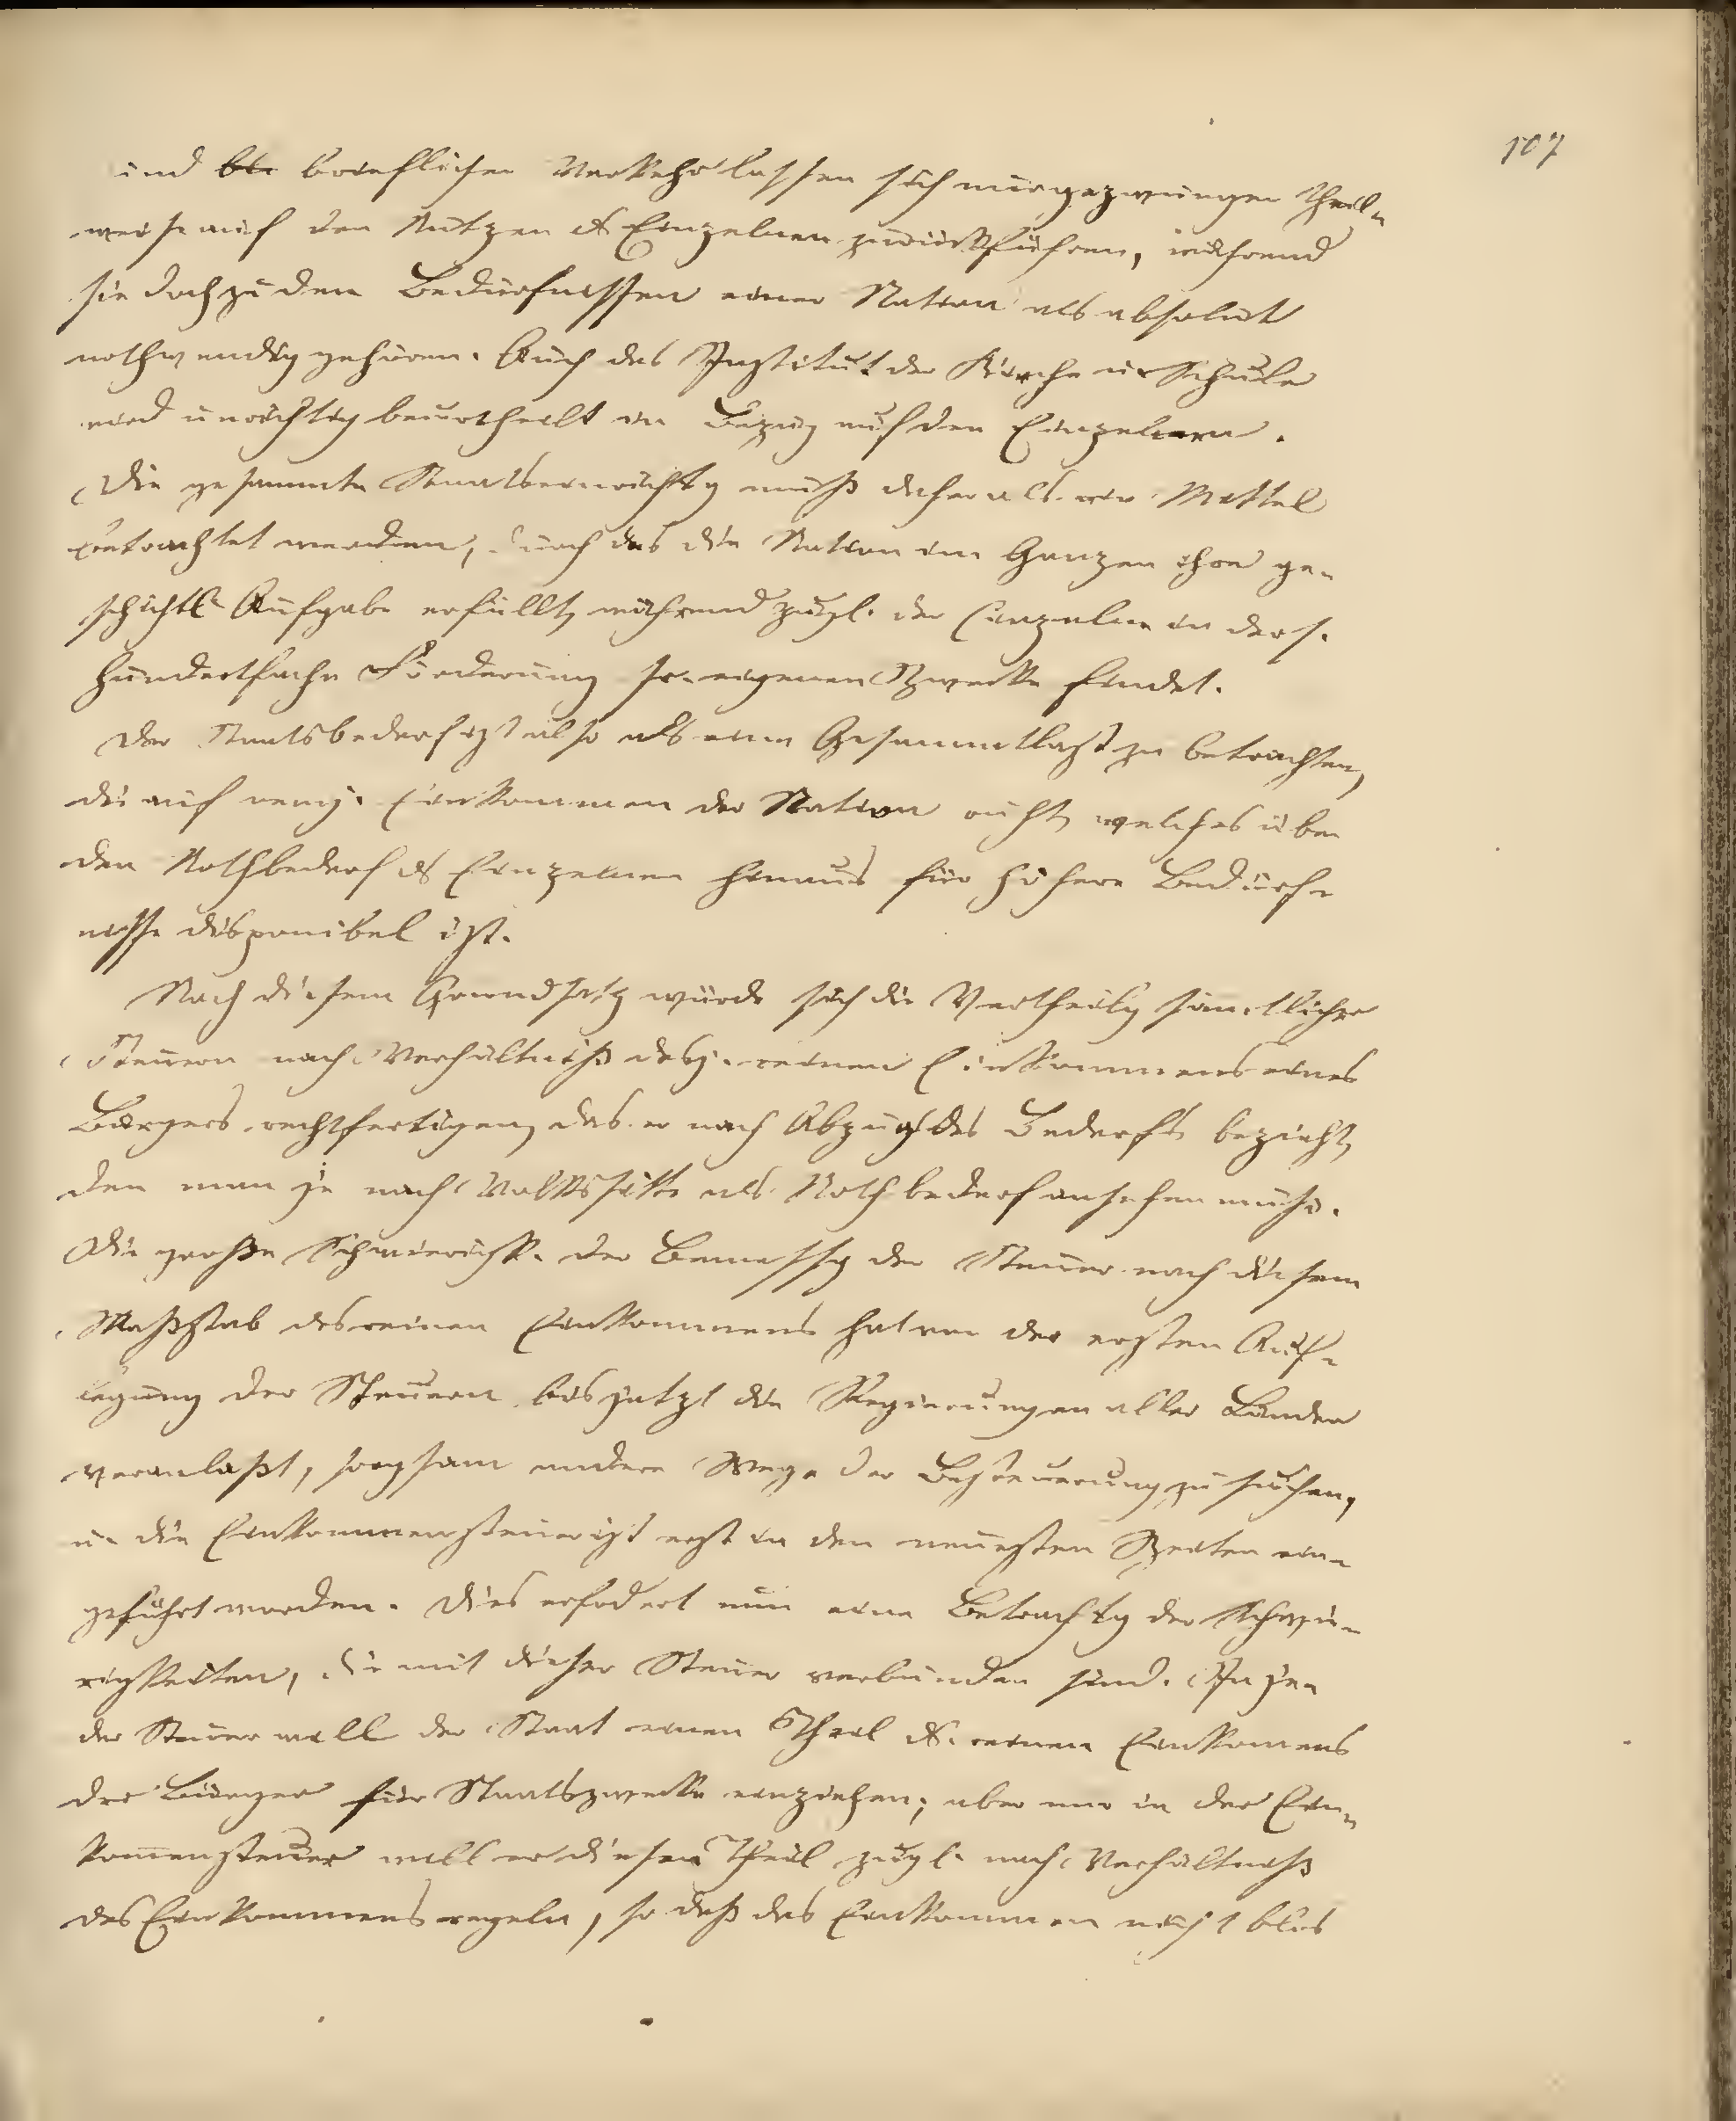 107
und <del>bl</del> brieflichen Verkehr lassen sich nur gezwungen theil-
weise auf den Nutzen ds Einzelnen zurückführen, während
sie doch zu den Bedürfnissen einer Nation als absolut
nothwendig gehören. Auch das Institut der Kirche u. Schule
wird unrichtig beurtheilt in Bezug auf den Einzelnen.
Die gesammte Staatseinrichtg muß daher als ein Mittel
betrachtet werden, durch das die Nation im Ganzen ihre ge-
schichtl. Aufgabe erfüllt, während zugl. der Einzelne in ders.
hundertfache Förderung sr. eigenen Zwecke findet.
Der Staatsbedarf ist also als eine Gesammtlast zu betrachten,
die auf demj. Einkommen der Nation ruht, welches über
den Nothbedarf ds Einzelnen hinaus für höhere Bedürf-
nisse disponibel ist.
Nach diesem Grundsatz würde sich die Vertheilg sämtlicher
Steuern nach Verhältniß desj. reinen Einkommens eines
Bürgers rechtfertigen, das er nach Abzug des Bedarfs bezieht,
den man je nach Volkssitte als Nothbedarf ansehen muß.
Die große Schwierigk. der Bemessg der Steuer nach diesem
Maßstab des reinen Einkommens hat von der ersten Auf-
legung der Steuern bis jetzt die Regierungen aller Länder
veranlaßt, sorgsam andere Wege der Besteuerung zu suchen,
u. die Einkommensteuer ist erst in den neuesten Zeiten ein-
geführt worden. Dies erfodert nun eine Betrachtg der Schwie-
rigkeiten, die mit dieser Steuer verbunden sind. In je-
der Steuer will der Staat einen Theil ds. reinen Einkomens
der Bürger für Staatszwecke einziehen; aber nur in der Ein-
komensteuer will er diesen Theil zugl. nach Verhältniß
des Einkommens regeln, so daß das Einkommen nicht blos